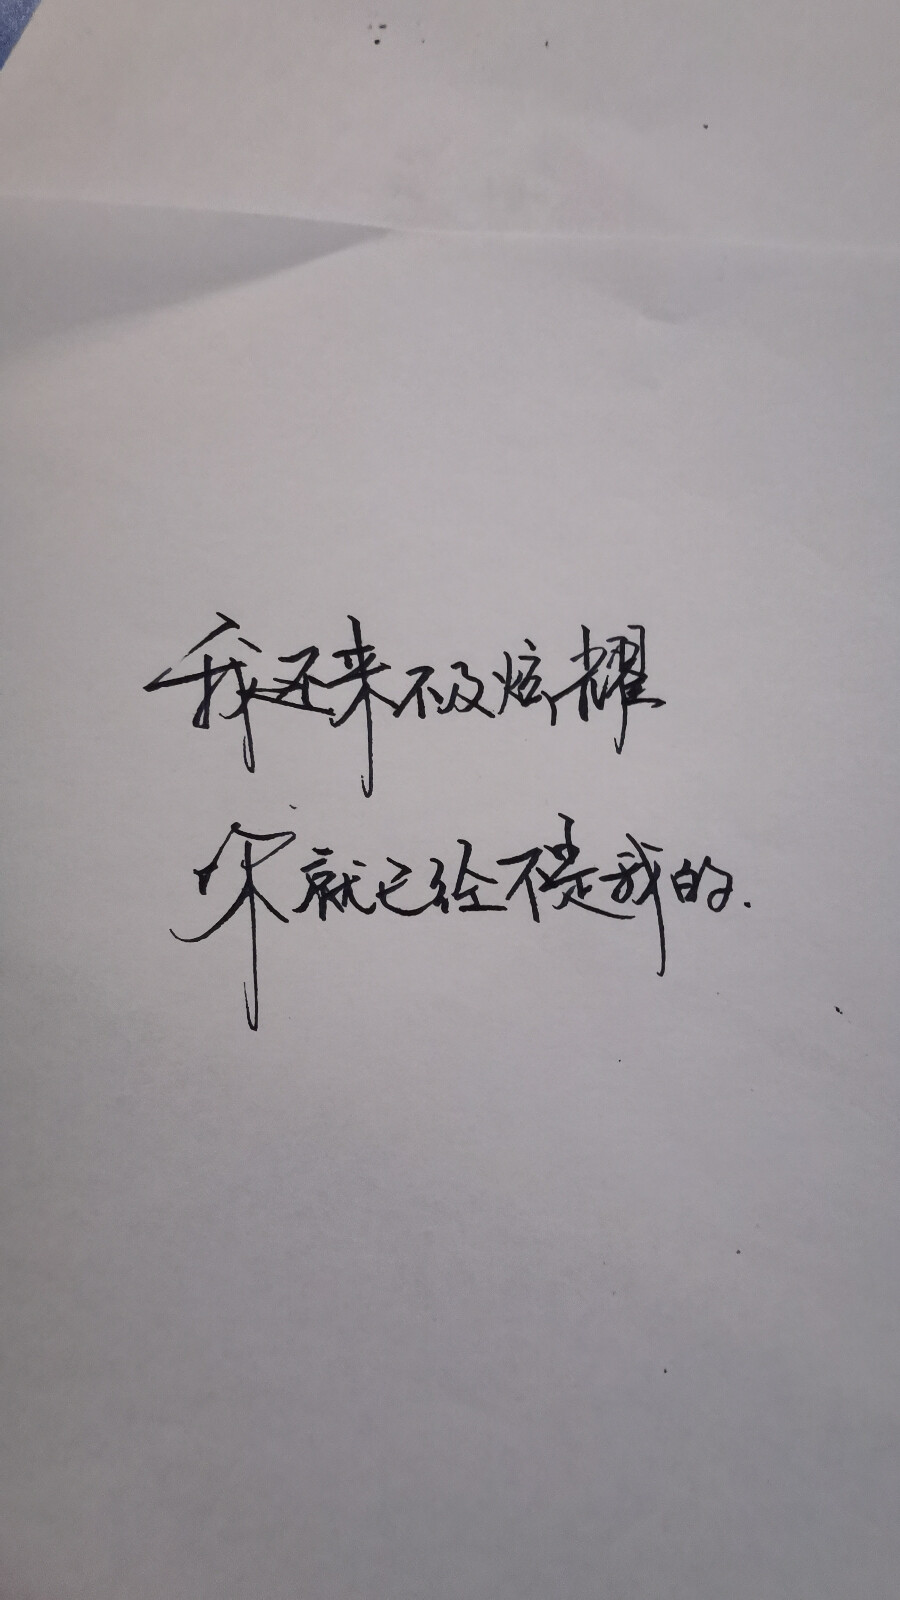 我还来不及炫耀
你就已经不是我的.